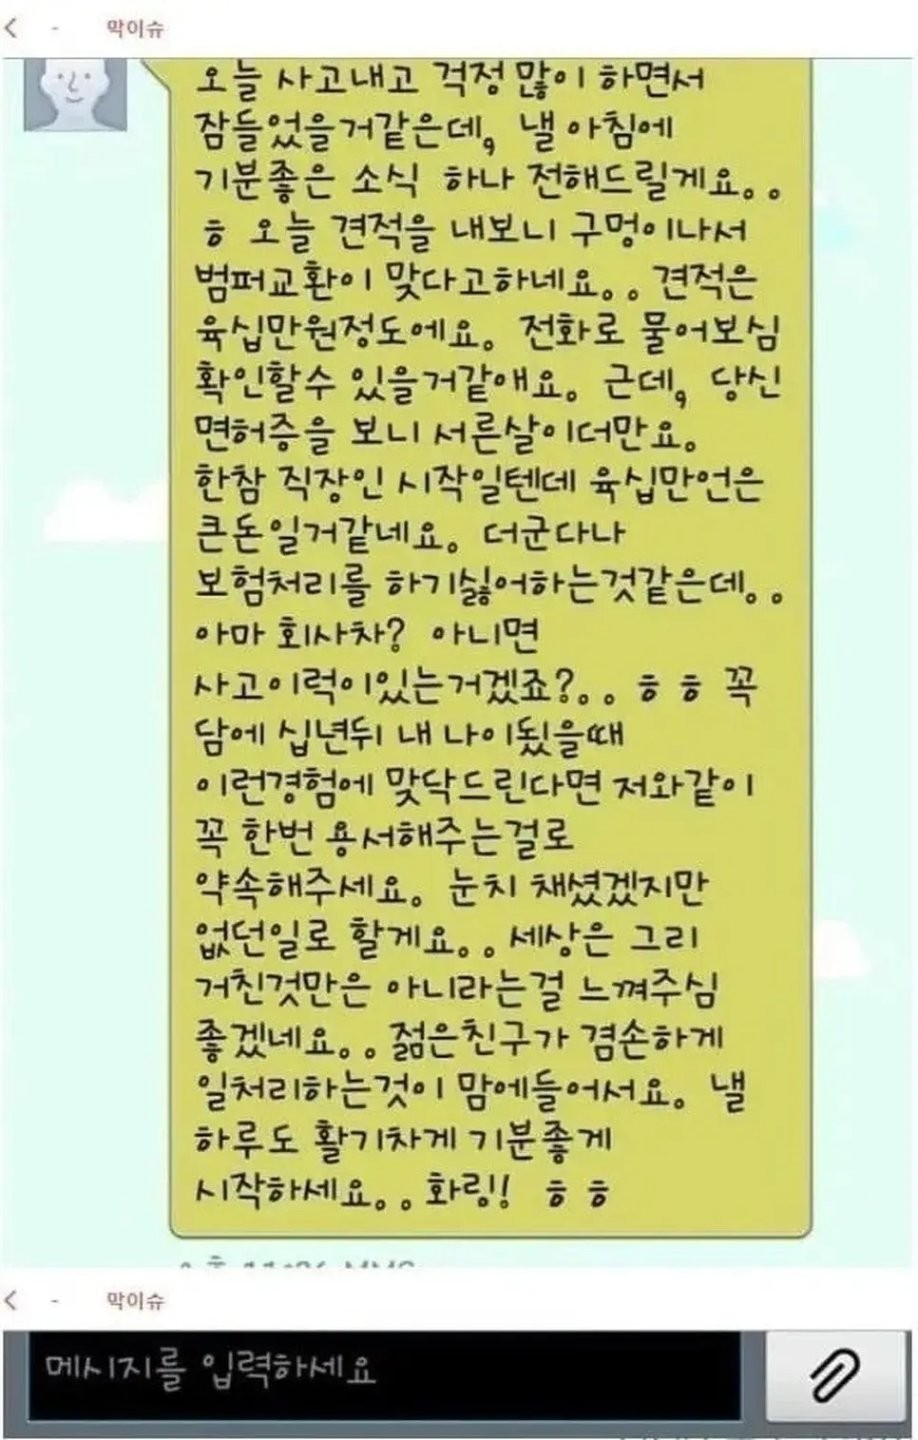 막이슈
오늘 사고내고 걱정 많이 하면서
잠들었을거같은데, 낼 아침에
기분좋은 소식 하나 전해드릴게요..
ㅎ 오늘 견적을 내보니 구멍이나서
범퍼교환이 맞다고하네요.. 견적은
육십만원정도에요. 전화로 물어보심
확인할수 있을거같애요. 근데, 당신
면허증을 보니 서른살이더만요.
한참 직장인 시작일텐데 육십만언은
큰돈일거같네요. 더군다나
보험처리를 하기싫어하는것같은데..
아마 회사차? 아니면
사고이력이있는거겠죠?.. ㅎㅎ 꼭
담에 십년뒤 내 나이됬을때
이런경험에 맞닥드린다면 저와같이
꼭 한번 용서해주는걸로
약속해주세요. 눈치 채셨겠지만
없던일로 할게요.. 세상은 그리
거친것만은 아니라는걸 느껴주심
좋겠네요.. 젊은친구가 겸손하게
일처리하는것이 맘에들어서요. 낼
하루도 활기차게 기분좋게
시작하세요.. 화링!! ㅎㅎ
막이슈
메시지를 입력하세요